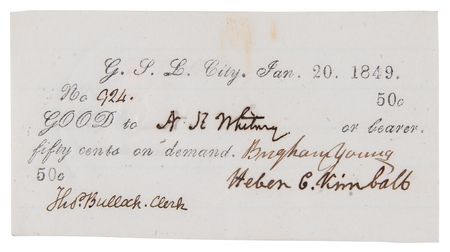 G. S. L. City, Jan. 20. 1849.
No 924. 50c
GOOD to N K Whitney or bearer.
fifty cents on demand. Brigham Young
50c Heber C. Kimball
Thos. Bullock. Clerk